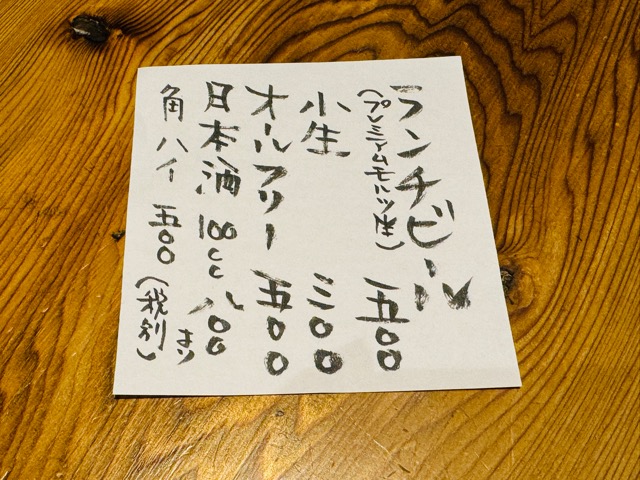 ランチビール
(プレミアムモルツ生) 五〇〇
小生 三〇〇
オールフリー 五〇〇
日本酒 100cc 八〇〇より
角ハイ 五〇〇 (税別)